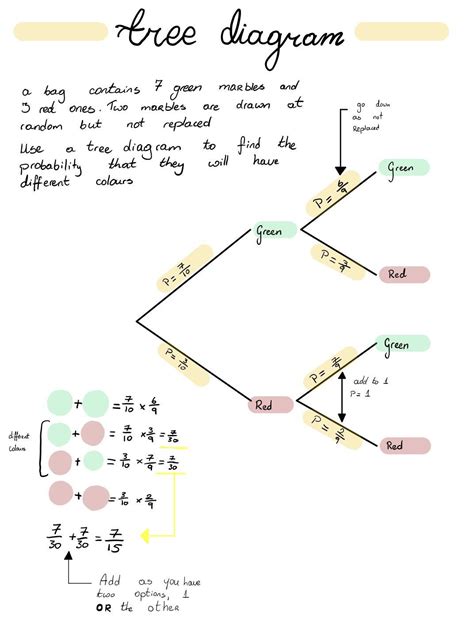 tree diagram
a bag contains 7 green marbles and
3 red ones. Two marbles are drawn at
random but not replaced
Use a tree diagram to find the
probability that they will have
different colours
go down
as not
Replaced
Green
P = 6/9
Green
P = 7/10
P = 3/9
Red
P = 3/10
Green
P = 7/9
add to 1
P = 1
Red
P = 2/9
Red
+ = 7/10 × 6/9
different
colours
+ = 7/10 × 3/9 = 7/30
+ = 3/10 × 7/9 = 7/30
+ = 3/10 × 2/9
7/30 + 7/30 = 7/15
Add as you have
two options, 1
OR the other